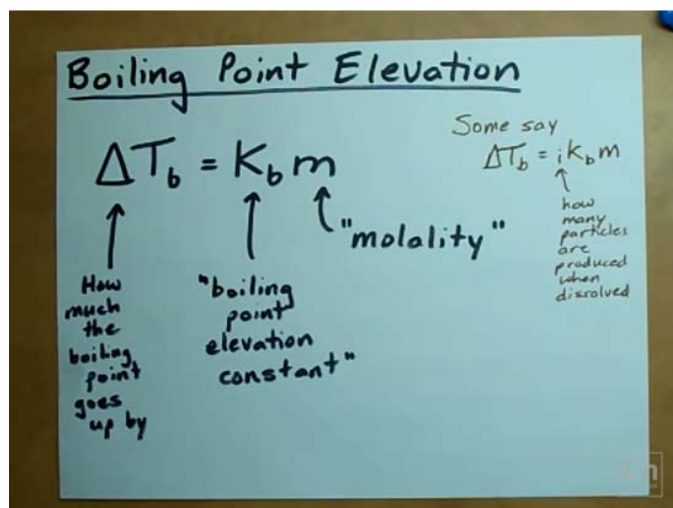 Boiling Point Elevation
ΔTb = Kb m
"molality"
How
much
the
boiling
point
goes
up by
"boiling
point
elevation
constant"
Some say
ΔTb = i Kb m
how
many
particles
are
produced
when
disolved